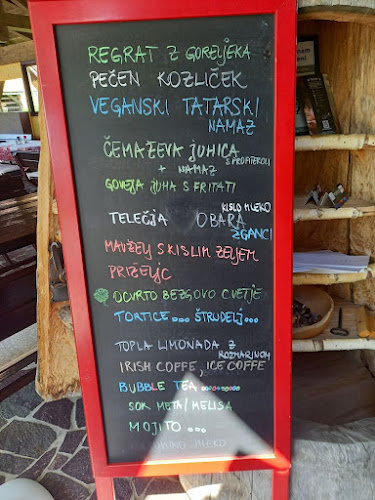 REGRAT Z GORELJEKA
PEČEN KOZLIČEK
VEGANSKI TATARSKI
NAMAZ
ČEMAŽEVA JUHICA
S PROFITEROLI
+ NAMAZ
GOVEJA JUHA S FRITATI
KISLO MLEKO
TELEČJA OBARA
ŽGANCI
MAVŽELJ S KISLIM ZELJEM
PRIŽELJC
OCVRTO BEZGOVO CVETJE
TORTICE... ŠTRUDELJ...
TOPLA LIMONADA Z
ROZMARINOM
IRISH COFFE, ICE COFFE
BUBBLE TEA
SOK META/MELISA
MOJITO ...
MLEKO